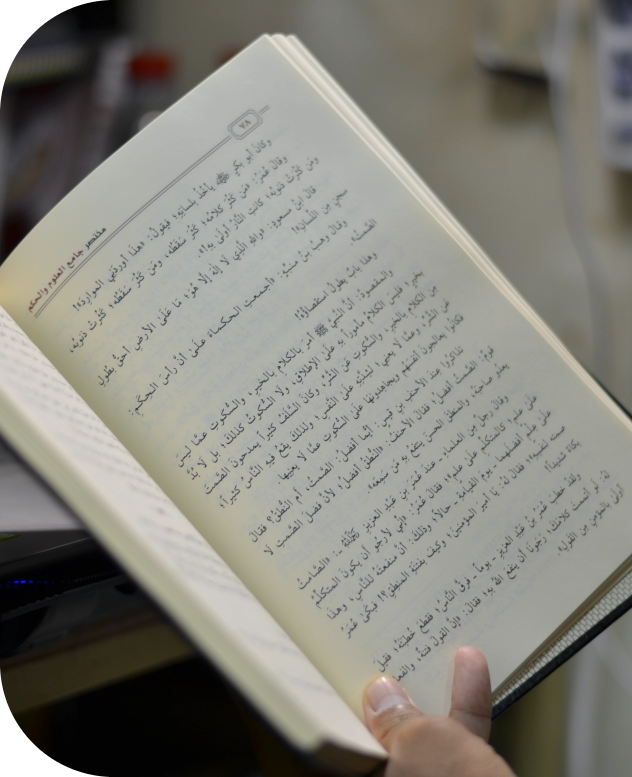 مختصر جامع العلوم والحكم
٧٨
وكان أبو بكر ﷺ يأخذ بلسانه؛ فيقول: «هذا أوردني الموارد»!
وقال عمر: «من كثر كلامه؛ كثر سقطه، ومن كثر سقطه؛ كثرت ذنوبه،
ومن كثرت ذنوبه؛ كانت النار أولى به».
قال ابن مسعود: «والله الذي لا إله إلا هو؛ ما على الأرض أحق بطول
سجن من اللسان»!
وقال وهب بن منبه: «أجمعت الحكماء على أن رأس الحكم:
الصمت».
وهذا باب يطول استقصاؤه!
والمقصود: أن النبي ﷺ أمر بالكلام بالخير، والسكوت عما ليس
بخير؛ فليس الكلام مأمورا به على الإطلاق، ولا السكوت كذلك، بل لا بد
من الكلام بالخير، والسكوت عن الشر، وكان السلف كثيرا يمدحون الصمت
عن الشر، وعما لا يعني؛ لشدته على النفس؛ ولذلك يقع فيه الناس كثيرا؛
فكانوا يعالجون أنفسهم ويجاهدونها على السكوت عما لا يعنيها.
تذاكروا عند الأحنف بن قيس: أيما أفضل: الصمت، أم النطق؟ فقال
قوم: الصمت أفضل؛ فقال الأحنف: «النطق أفضل؛ لأن فضل الصمت لا
يعدو صاحبه، والمنطق الحسن ينتفع به من سمعه».
وقال رجل من العلماء ـ عند عمر بن عبد العزيز ـ: «الصامت
على علم؛ كالمتكلم على علم»؛ فقال عمر: «إني لأرجو أن يكون المتكلم
على علم أفضلهما ـ يوم القيامة ـ حالا؛ وذلك: أن منفعته للناس، وهذا
صمته لنفسه»! فقال له: يا أمير المؤمنين! وكيف بفتنة المنطق؟! فبكى عمر
بكاء شديدا!
ولقد خطب عمر بن عبد العزيز ـ يوما ـ فرق الناس؛ فقطع خطبته؛ فقيل
له: لو أتممت كلامك؛ رجونا أن ينفع الله به؛ فقال: «إن القول فتنة، والفعل
أولى بالمؤمن من القول».